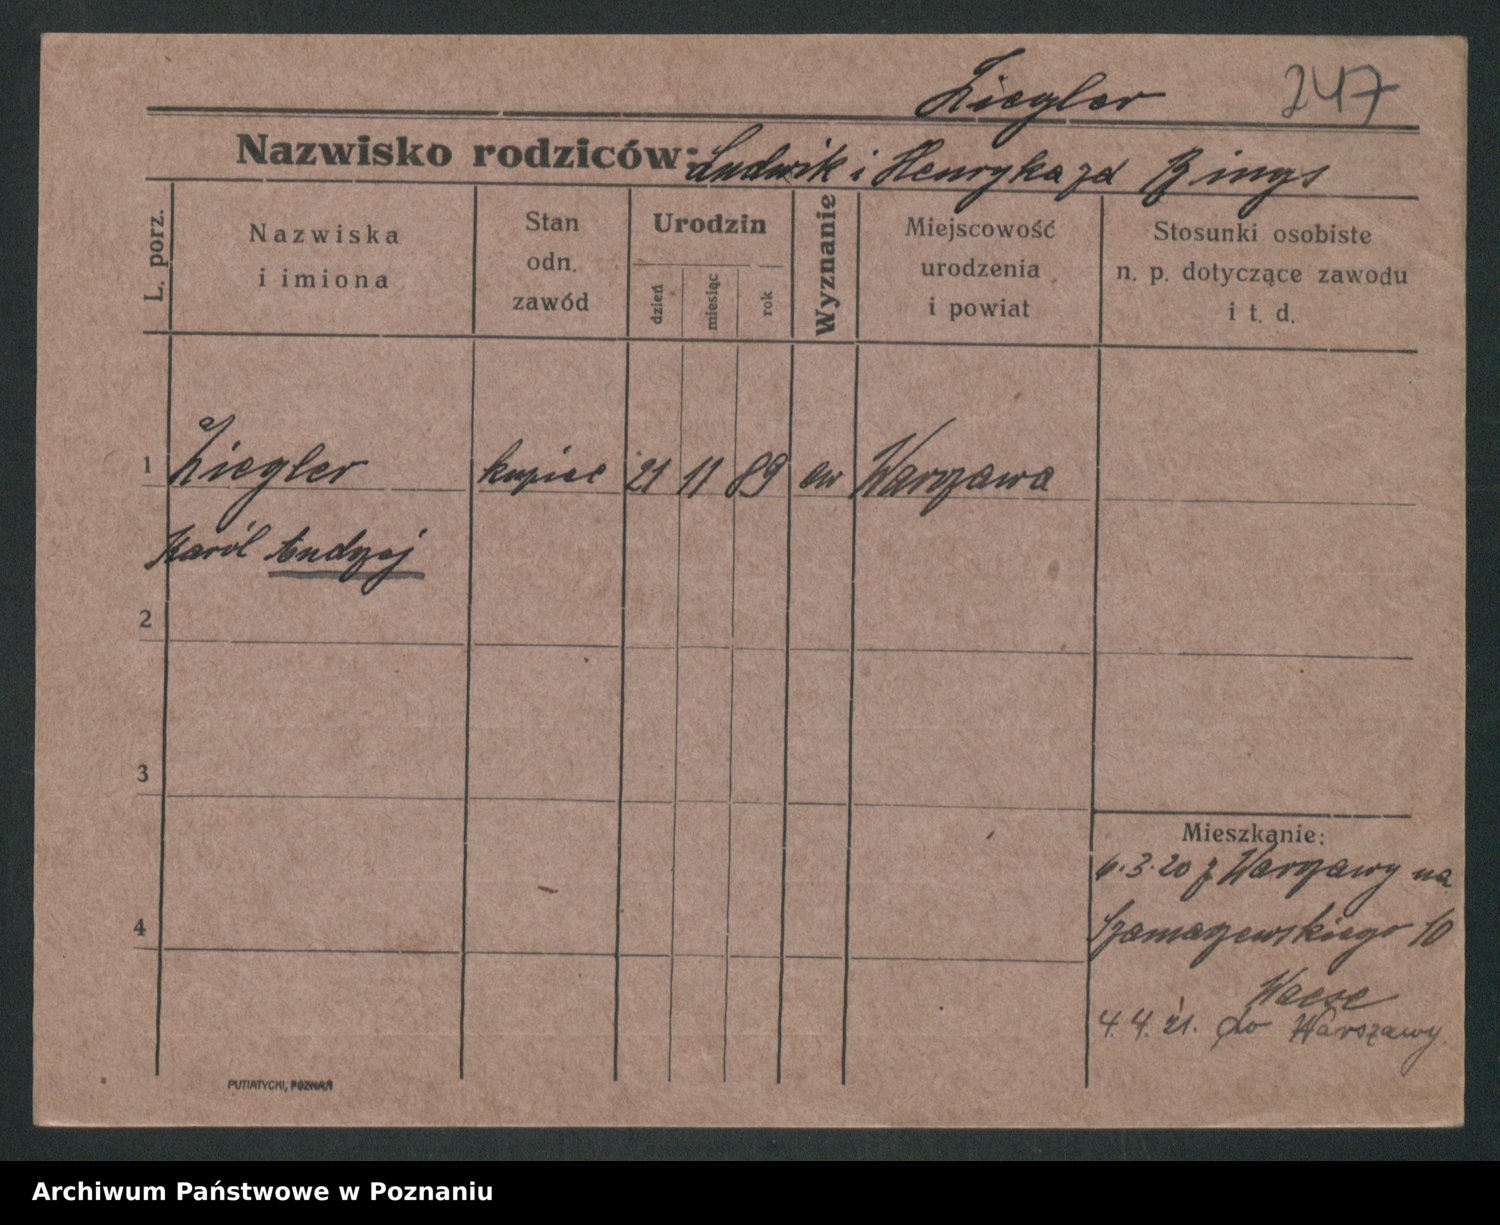 Ziegler 247
Nazwisko rodziców: Ludwik i Henryka zd Bings
L. porz.
Nazwiska
i imiona
Stan
odn.
zawód
Urodzin
dzień
miesiąc
rok
Wyznanie
Miejscowość
urodzenia
i powiat
Stosunki osobiste
n. p. dotyczące zawodu
i t. d.
1 Ziegler kupiec 21 11 89 ew Warszawa
Karól Andrzej
2
3
Mieszkanie:
6.3.20 z Warszawy na
Szamarzewskiego 10
4
4.4.21. do Warszawy.
PUTIATYCKI, POZNAŃ
Archiwum Państwowe w Poznaniu